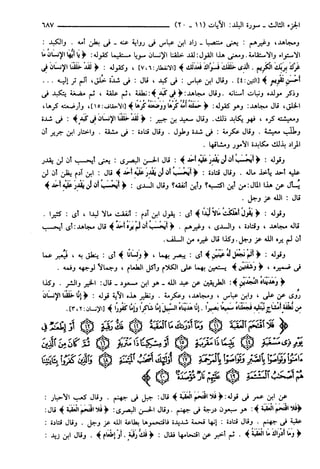 الجزء الثالث - سورة البلد: الآيات (١١ - ٢٠) ٦٨٧
ومجاهد، وغيرهم : يعنى منتصبا - زاد ابن عباس فى رواية عنه - فى بطن أمه . والكبد :
الاستواء والاستقامة. ومعنى هذا القول: لقد خلقنا الإنسان سويا مستقيما كقوله: ﴿ يَا أَيُّهَا الإِنسَانُ مَا
غَرَّكَ بِرَبِّكَ الْكَرِيمِ . الَّذِي خَلَقَكَ فَسَوَّاكَ فَعَدَلَكَ ﴾ [الانفطار:٦، ٧] ، وكقوله : ﴿ لَقَدْ خَلَقْنَا الإِنسَانَ فِي
أَحْسَنِ تَقْوِيمٍ ﴾ [التين: ٤] . وقال ابن عباس : فى كبد ، قال : فى شدة خَلْق، ألم تر إليه ...
وذكر مولده ونبات أسنانه . وقال مجاهد: ﴿ فِي كَبَدٍ ﴾: نطفة ، ثم علقة ، ثم مضغة يتكبد فى
الخلق، قال مجاهد: وهو كقوله: ﴿ حَمَلَتْهُ أُمُّهُ كُرْهًا وَوَضَعَتْهُ كُرْهًا ﴾ [الأحقاف: ١٥]، وأرضعته كرها،
ومعيشته كره ، فهو يكابد ذلك. وقال سعيد بن جبير : ﴿ لَقَدْ خَلَقْنَا الإِنسَانَ فِي كَبَدٍ ﴾ : فى شدة
وطلَب معيشة . وقال عكرمة : فى شدة وطول . وقال قتادة : فى مشقة . واختار ابن جرير أن
المراد بذلك مكابدة الأمور ومشاقها .
وقوله : ﴿ أَيَحْسَبُ أَن لَّن يَقْدِرَ عَلَيْهِ أَحَدٌ ﴾ : قال الحسن البصرى : يعنى أيحسب أن لن يقدر
عليه أحد يأخذ ماله . وقال قتادة : ﴿ أَيَحْسَبُ أَن لَّن يَقْدِرَ عَلَيْهِ أَحَدٌ ﴾ قال : ابن آدم يظن أن لن
يُسأل عن هذا المال: من أين اكتسبه؟ وأين أنفقه؟ وقال السدى : ﴿ أَيَحْسَبُ أَن لَّن يَقْدِرَ عَلَيْهِ أَحَدٌ ﴾
قال : الله عز وجل .
وقوله : ﴿ يَقُولُ أَهْلَكْتُ مَالاً لُّبَدًا ﴾ أى : يقول ابن آدم : أنفقت مالا لبدا ، أى : كثيرا .
قاله مجاهد ، وقتادة ، والسدى ، وغيرهم . ﴿ أَيَحْسَبُ أَن لَّمْ يَرَهُ أَحَدٌ ﴾ قال مجاهد: أى أيحسب
أن لم يره الله عز وجل. وكذا قال غيره من السلف.
وقوله : ﴿ أَلَمْ نَجْعَل لَّهُ عَيْنَيْنِ ﴾ أى : يبصر بهما ، ﴿ وَلِسَانًا ﴾ أى : ينطق به ، فيُعبر عما
فى ضميره ، ﴿ وَشَفَتَيْنِ ﴾ يستعين بهما على الكلام وأكل الطعام ، وجمالاً لوجهه وفمه .
﴿ وَهَدَيْنَاهُ النَّجْدَيْنِ ﴾ : الطريقين . عن عبد الله - هو ابن مسعود - قال: الخير والشر . وكذا
رُوى عن على ، وابن عباس ، ومجاهد، وعكرمة . ونظير هذه الآية قوله : ﴿ إِنَّا خَلَقْنَا الإِنسَانَ
مِن نُّطْفَةٍ أَمْشَاجٍ نَّبْتَلِيهِ فَجَعَلْنَاهُ سَمِيعًا بَصِيرًا . إِنَّا هَدَيْنَاهُ السَّبِيلَ إِمَّا شَاكِرًا وَإِمَّا كَفُورًا ﴾ [الإنسان: ٢، ٣].
عن ابن عمر فى قوله: ﴿ فَلا اقْتَحَمَ الْعَقَبَةَ ﴾ قال: جبل فى جهنم . وقال كعب الأحبار :
﴿ فَلا اقْتَحَمَ الْعَقَبَةَ ﴾ : هو سبعون درجة فى جهنم . وقال الحسن البصرى: ﴿ فَلا اقْتَحَمَ الْعَقَبَةَ ﴾ قال:
عقبة فى جهنم . وقال قتادة : إنها قحمة شديدة فاقتحموها بطاعة الله عز وجل . وقال قتادة :
﴿ وَمَا أَدْرَاكَ مَا الْعَقَبَةُ ﴾ . ثم أخبر عن اقتحامها فقال : ﴿ فَكُّ رَقَبَةٍ . أَوْ إِطْعَامٌ ﴾ . وقال ابن زيد :